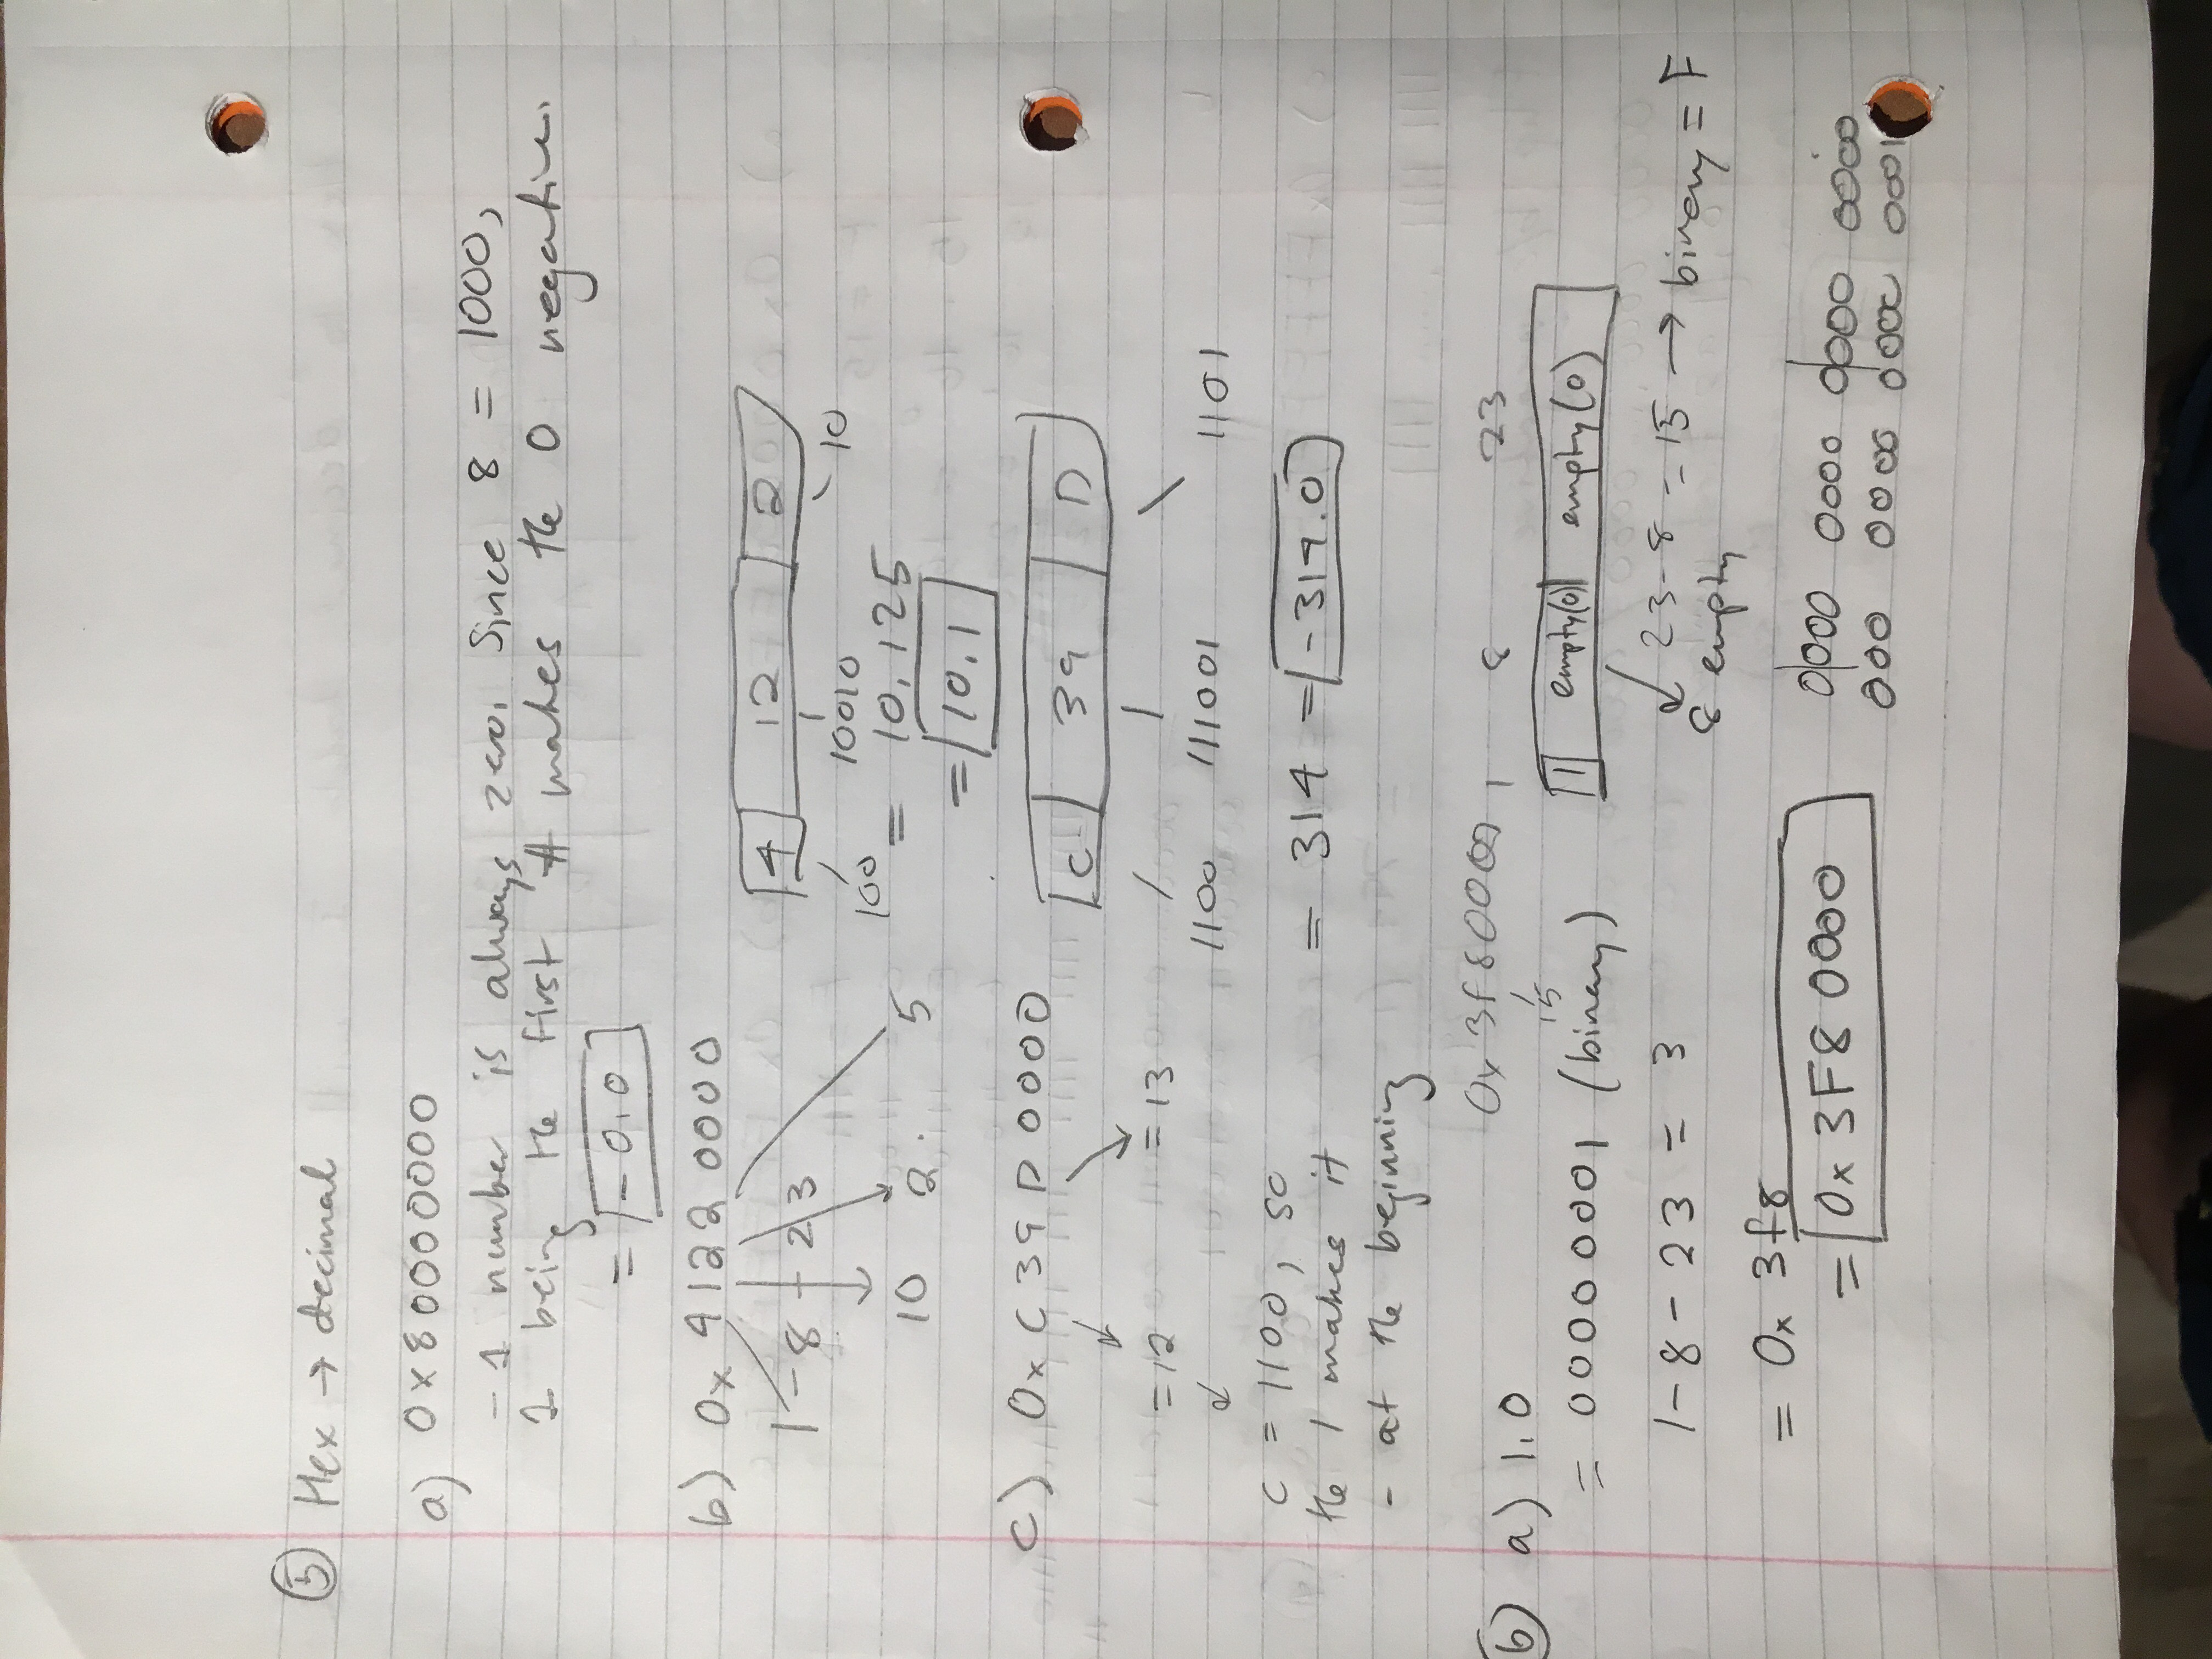 ⑤ Hex → decimal
a) 0x80000000
- 1 number is always zero. Since 8 = 1000,
1 being the first # makes the 0 negative.
= -0.0
b) 0x 4122 0000
4 12 2
1 - 8 - 23
100 10010 10
10 2. 5
= 10.125
= 10.1
c) 0x C39D 0000
C 39 D
= 12 = 13
1100 111001 1101
C = 1100, so
the 1 makes it
- at the beginning
= 314 = -317.0
0x3f80000, 1 8 23
15
⑥ a) 1.0
= 00000001 (binary)
1 empty(0) empty(0)
1 - 8 - 23 = 3
23 - 8 = 15 → binary = F
8 empty
= 0x 3f8
= 0x 3F8 0000
0000 0000 0000 0000
000 0000 000 0001